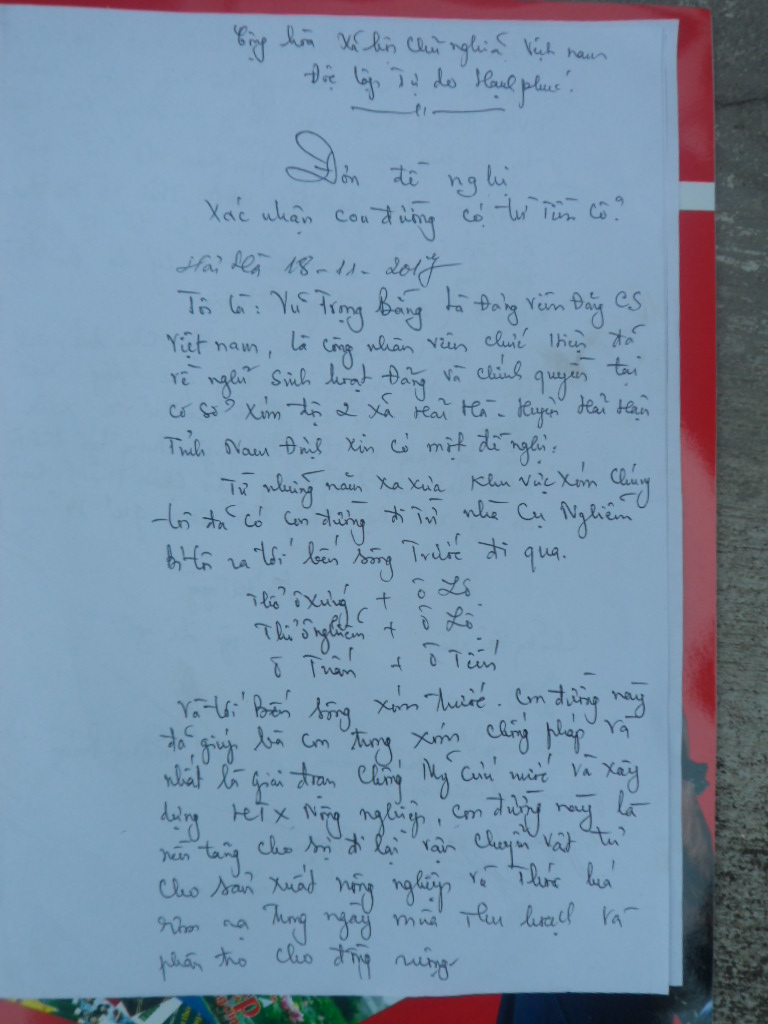 Cộng hòa xã hội chủ nghĩa Việt nam
Độc lập Tự do Hạnh phúc.
Đơn đề nghị
Xác nhận con đường có từ Tiền cổ?
Hải Hà 18-11-2017
Tôi là: Vũ Trọng Bằng là Đảng viên Đảng CS
Việt nam, là công nhân viên chức hiện đã
về nghỉ sinh hoạt Đảng và chính quyền tại
cơ sở xóm đội 2 xã Hải Hà - Huyện Hải Hậu
Tỉnh Nam Định xin có một đề nghị:
Từ những năm xa xưa khu vực xóm chúng
tôi đã có con đường đi từ nhà Cụ Nghiêm
Bí tôi ra tới bến sông Trước đi qua.
Thổ ô Xứng + ô Lô
Thổ ô nghiêm + ô Lô
ô Tuấn + ô Tiến
Và tới Bến sông xóm trước. Con đường này
đã giúp bà con trong xóm chống pháp và
nhất là giai đoạn chống Mỹ cứu nước và xây
dựng HTX Nông nghiệp, con đường này là
nền tảng cho sự đi lại vận chuyển vật tư
cho sản xuất nông nghiệp và thóc lúa
rơm rạ trong ngày mùa thu hoạch và
phân tro cho đồng ruộng